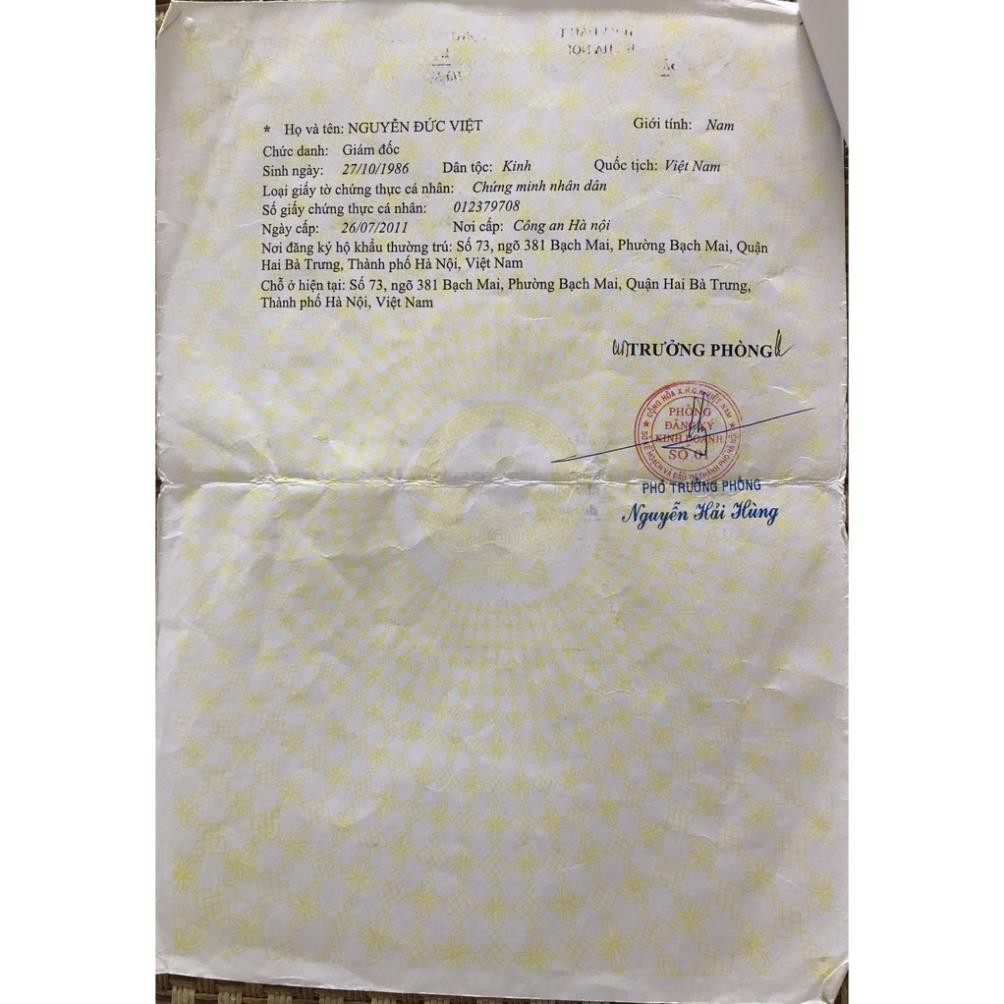 * Họ và tên: NGUYỄN ĐỨC VIỆT Giới tính: Nam
Chức danh: Giám đốc
Sinh ngày: 27/10/1986 Dân tộc: Kinh Quốc tịch: Việt Nam
Loại giấy tờ chứng thực cá nhân: Chứng minh nhân dân
Số giấy chứng thực cá nhân: 012379708
Ngày cấp: 26/07/2011 Nơi cấp: Công an Hà nội
Nơi đăng ký hộ khẩu thường trú: Số 73, ngõ 381 Bạch Mai, Phường Bạch Mai, Quận
Hai Bà Trưng, Thành phố Hà Nội, Việt Nam
Chỗ ở hiện tại: Số 73, ngõ 381 Bạch Mai, Phường Bạch Mai, Quận Hai Bà Trưng,
Thành phố Hà Nội, Việt Nam
TRƯỞNG PHÒNG
CỘNG HÒA X.H.C.N VIỆT NAM
PHÒNG
ĐĂNG KÝ
KINH DOANH
SỐ 01
SỞ KẾ HOẠCH VÀ ĐẦU TƯ THÀNH PHỐ HÀ NỘI
PHÓ TRƯỞNG PHÒNG
Nguyễn Hải Hùng